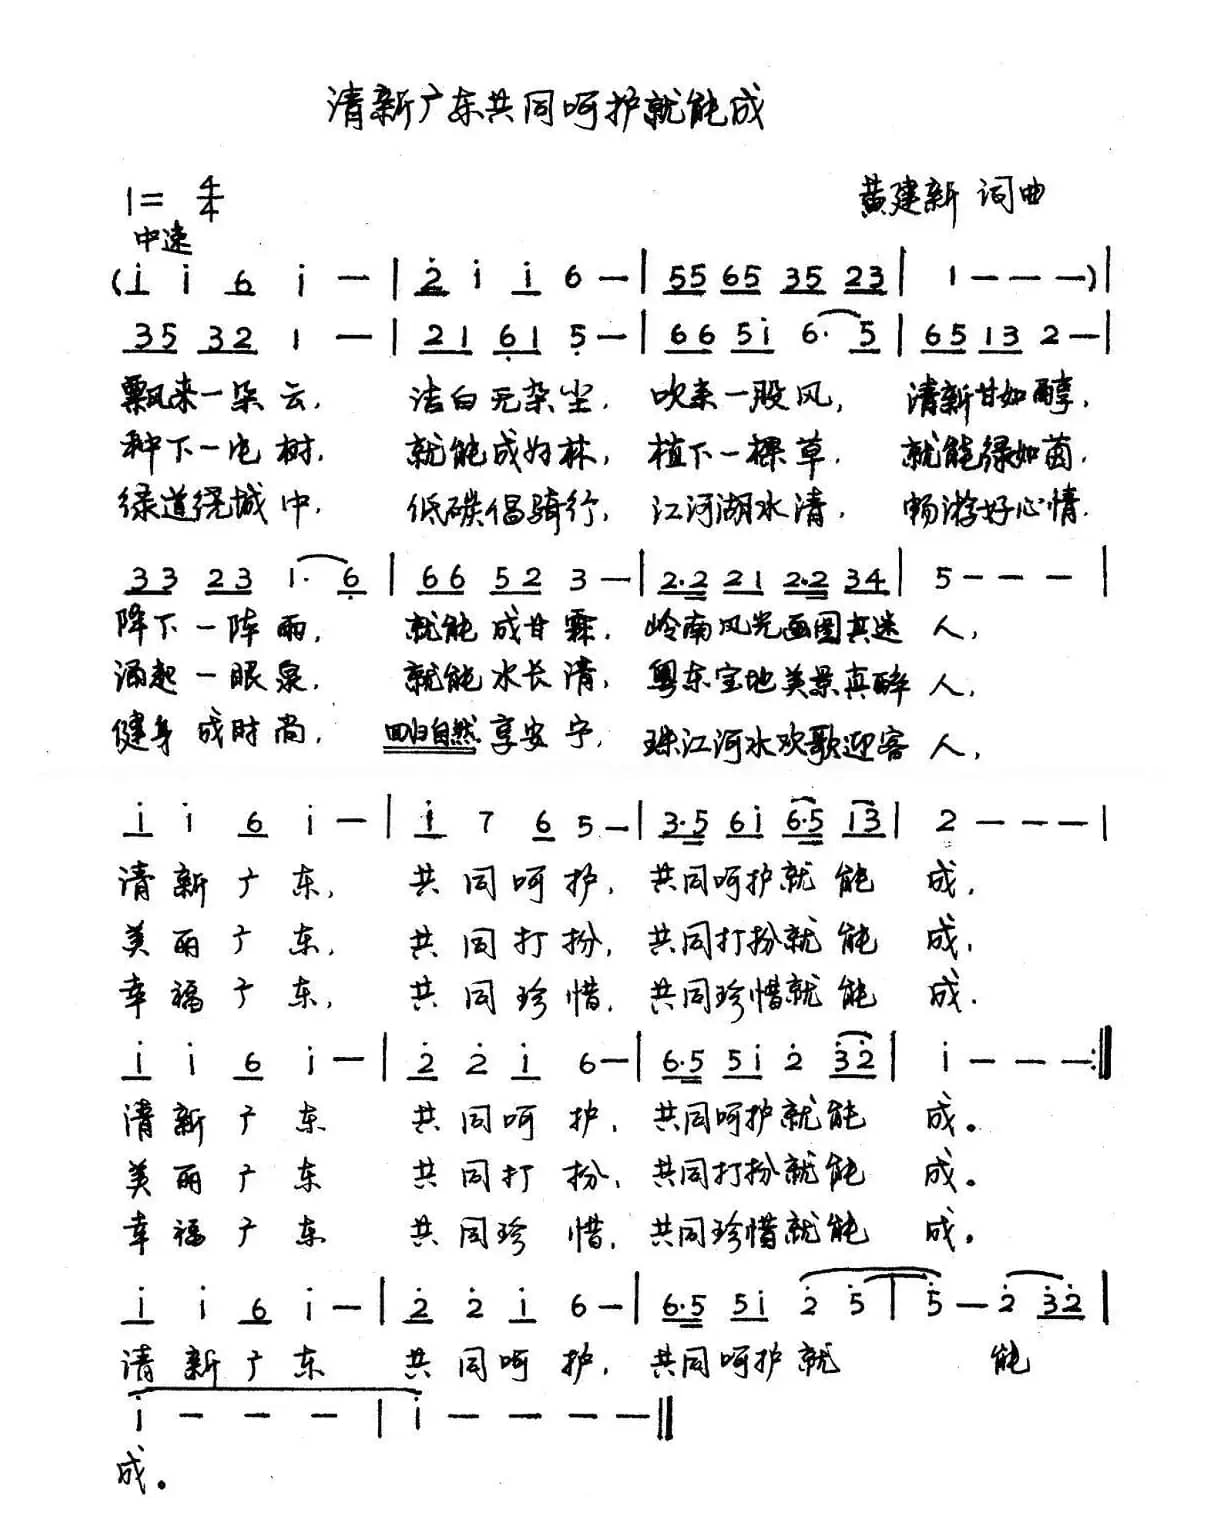 清新广东共同呵护就能成
1= 4/4
黄建新 词曲
中速
(i i 6 i — | 2 i i 6 — | 55 65 35 23 | 1 — — — )|
35 32 1 — | 21 61 5 — | 66 5i 6· 5 | 65 13 2 — |
飘来一朵云, 洁白无杂尘, 吹来一股风, 清新甘如醇,
种下一屯树, 就能成好林, 植下一棵草, 就能绿如茵,
绿道绕城中, 低碳倡骑行, 江河湖水清, 畅游好心情.
33 23 1· 6 | 66 52 3 — | 2·2 21 2·2 34 | 5 — — — |
降下一阵雨, 就能成甘霖, 岭南风光画图真迷人,
涌起一眼泉, 就能水长清, 粤东宝地美景真醉人,
健身成时尚, 回归自然享安宁, 珠江河水欢歌迎客人,
i i 6 i — | i 7 6 5 — | 3·5 6i 6·5 i3 | 2 — — — |
清新广东, 共同呵护, 共同呵护就能成,
美丽广东, 共同打扮, 共同打扮就能成,
幸福广东, 共同珍惜, 共同珍惜就能成.
i i 6 i — | 2 2 i 6 — | 6·5 5i 2 32 | i — — — :‖
清新广东 共同呵护, 共同呵护就能成。
美丽广东 共同打扮, 共同打扮就能成。
幸福广东 共同珍惜, 共同珍惜就能成。
i i 6 i — | 2 2 i 6 — | 6·5 5i 2 5 | 5 — 2 32 |
清新广东 共同呵护, 共同呵护就 能
i — — — | i — — — — ‖
成。